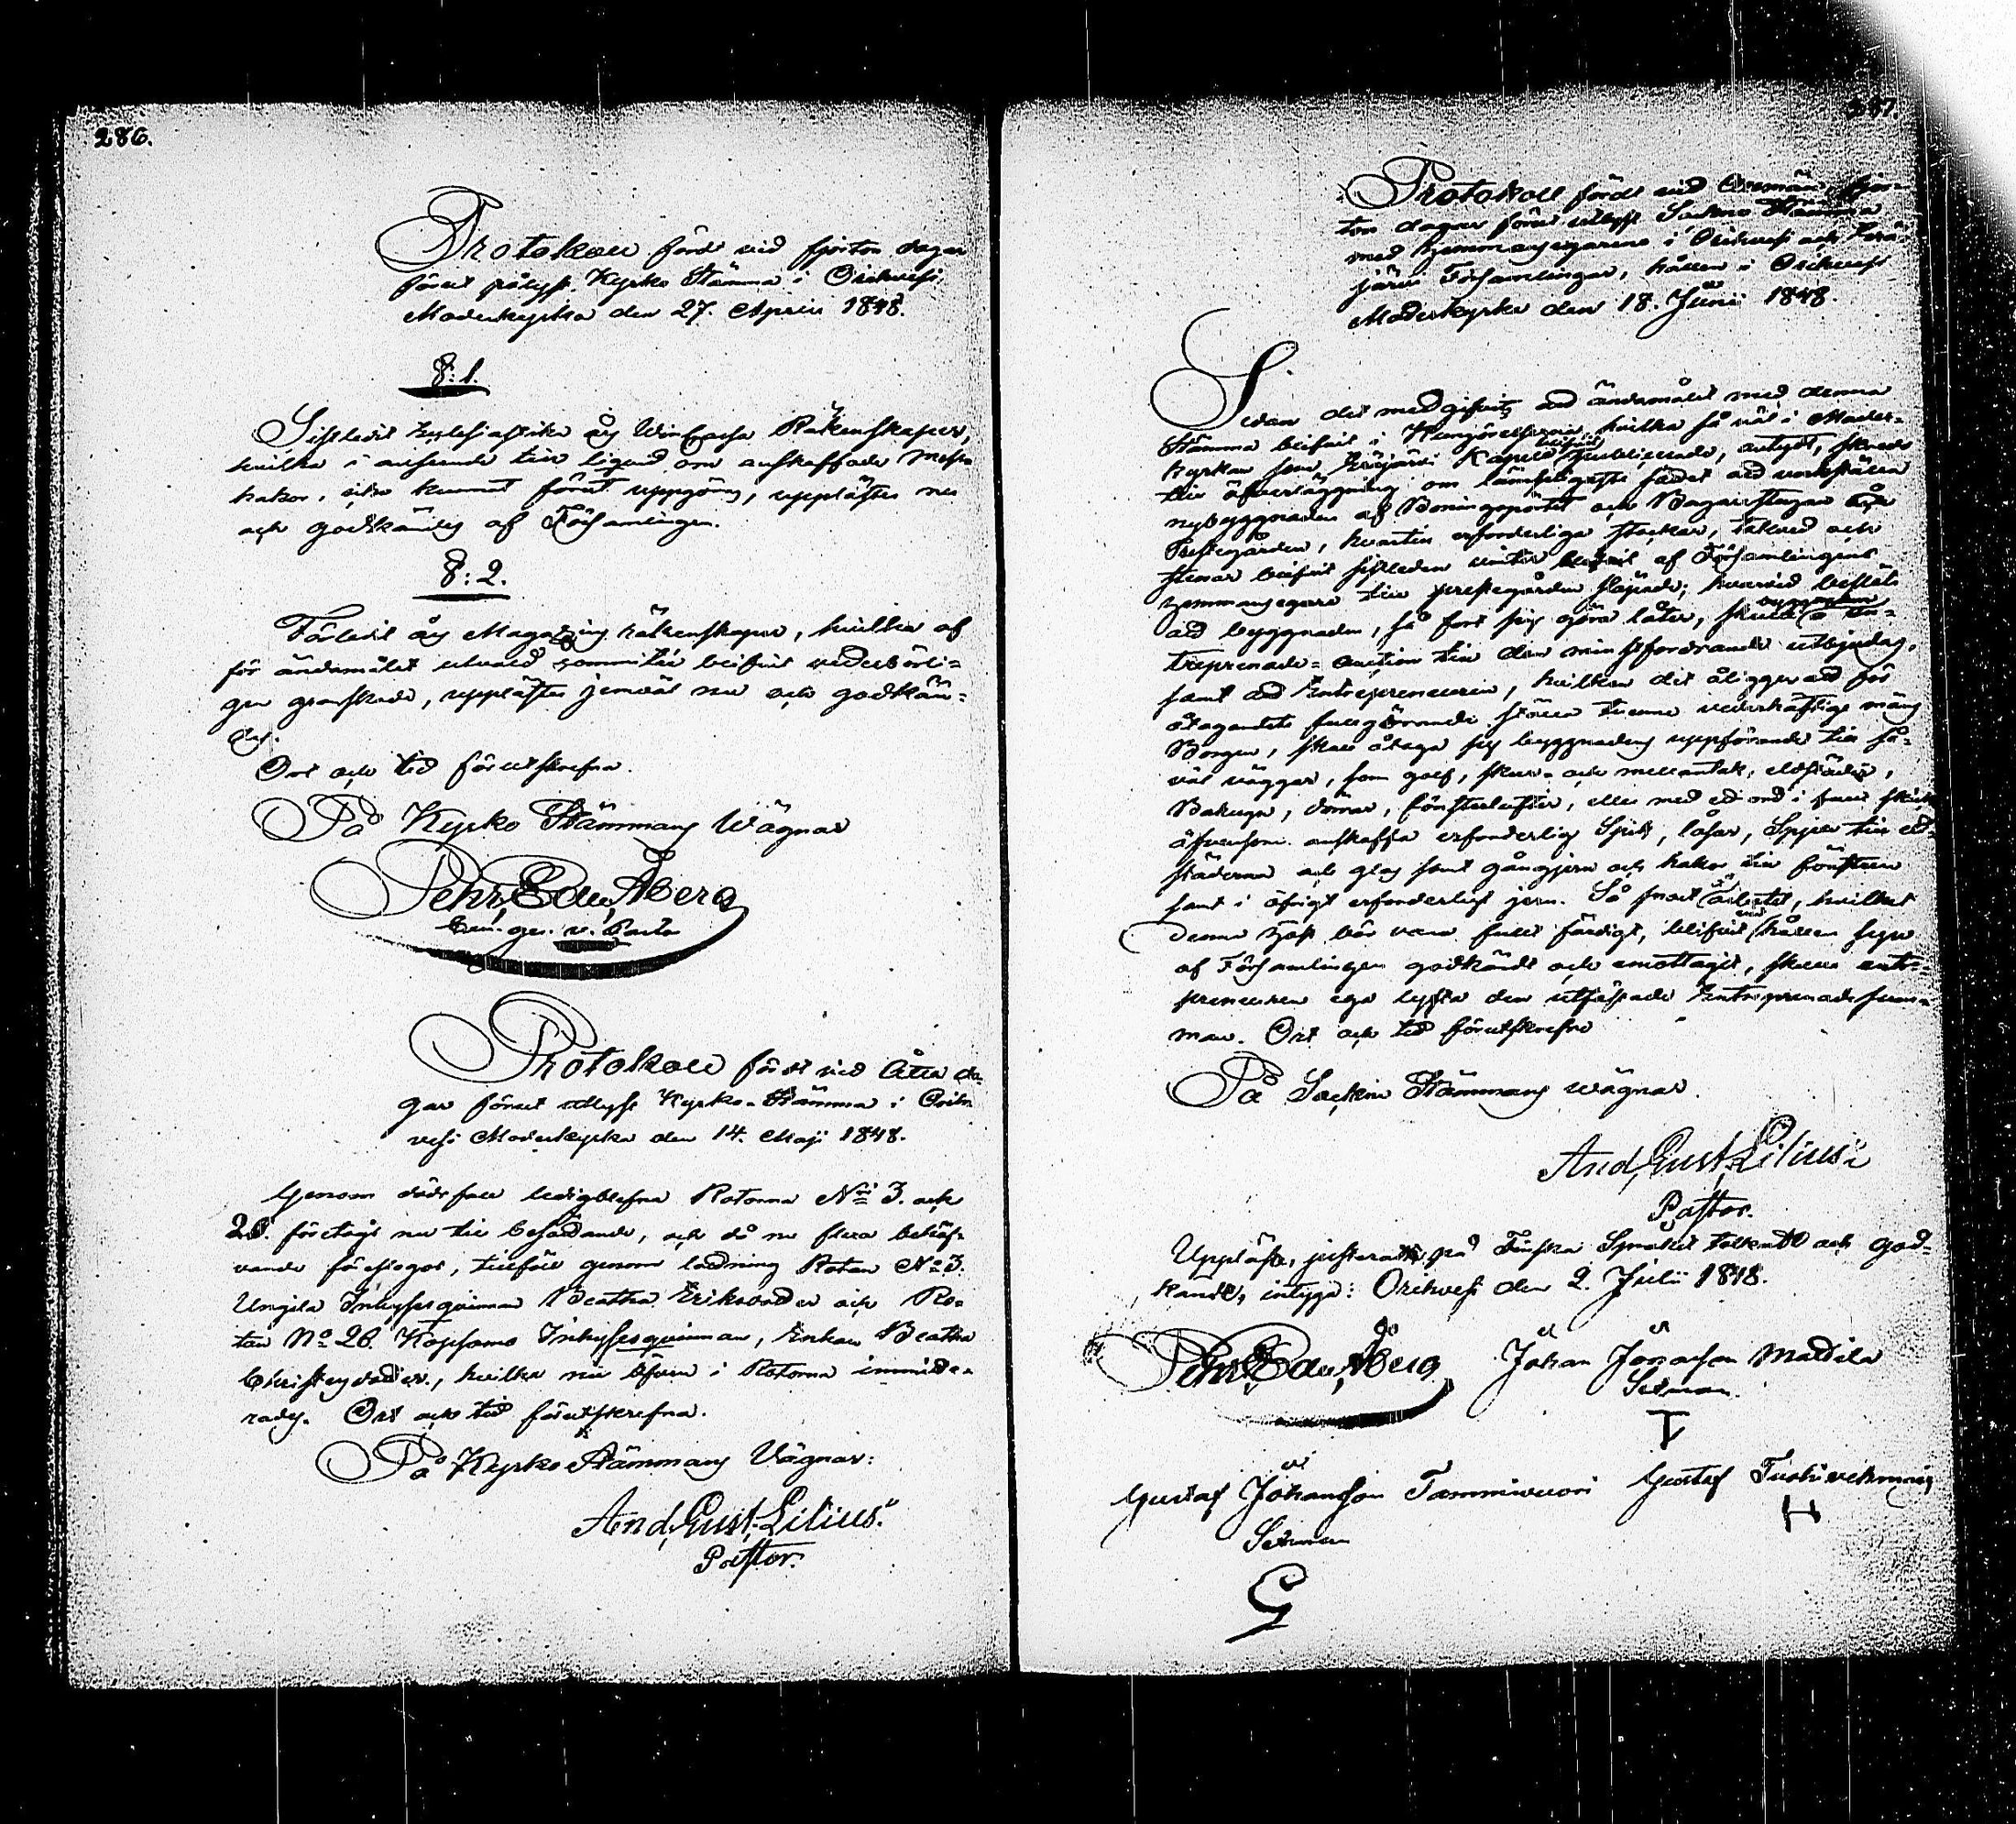 286.
Protokoll fördt vid fjorton dagar
förut pålyst Kyrko Stämma i Orihvesi
Moderkyrka den 27. April 1848.
§: 1.
Sistledit Ecklesiastika års Räkenskaper,
hvilka i anseende till
hakar, icke kunnat förut uppgöras, upplästes nu
och godkändes af Församlingen.
§: 2.
Förledit års Magazins räkenskaper, hvilka af
för ändamålet utvald committé blifvit vederbörli-
gen granskade, upplästes jemväl nu och godkän-
des.
Ort och tid förutskrefna.
På Kyrko Stämmans Wägnar
Pehr Edv. Åberg
v. Pastor
Protokoll fördt vid Åtta da-
gar förut utlyst Kyrko-Stämma i Orih-
vesi Moderkyrka den 14. Maji 1848.
Genom dödsfall ledigblefna Rotorna No 3. och
26. företogs nu till besättande, och då nu flera behöf-
vande föreslogos, tillföll genom lottning Rotan No 3.
Ungila Inhysesqvinnan Beatha Eriksdoder och Ro-
tan No 26. Kopsamo Inhysesqvinnan, Enkan Beatha
Christersdoder, hvilka nu äfven i Rotorna immitte-
rades. Ort och tid förutskrefna.
På Kyrko Stämmans Vägnar:
And. Gust. Lilius.
Pastor.
287.
Protokoll fördt vid fjor-
ton dagar förut utlyst Sockne Stämma
med hemmansegarene i Orihvesi och Erä-
järvi Församlingar, hållen i Orihvesi
Moderkyrka den 18. Junii 1848.
Sedan det medgifvits att ändamålet med denna
Stämma blifvit i Kungörelserna, hvilka så väl i Moder-
kyrkan som Eräjärvi Kapell blifvit publicerade, antydt, skreds
till öfverläggning om lämpligaste sättet att verkställa
nybyggnaden af Boningspörtet och Bagarstugan å
Prestegården, hvartill erforderliga stockar, takved och
stenar blifvit sistleden vinter af Församlingens
hemmansegare till prestegården släpade; hvarvid beslöts
att byggnaden, så fort sig göra låter, skulle å En-
treprenade-auction till den minstfordrande utbjudas,
samt att Entrepreneuren, hvilken det åligger att för
åtagandets fullgörande ställa tvenne vederhäftige mäns
Borgen, skall åtaga sig byggnadens uppförande till så-
väl väggar, som golf, skur- och mellantak, eldstäder,
Bakugn, dörrar, fönsterlufter, eller med ett ord i fullt skick
äfvensom anskaffa erforderlig Spik, låsar, Spjäll till eld-
städerna och glas samt gångjern och hakar till fönstren
samt i öfrigt erforderligt jern. Så snart arbetet, hvilket
denna höst bör vara fullt färdigt, blifvit vid hållen Syn
af Församlingen godkändt och emottagit, skall entre-
preneuren ega lyfta den utfästade Entreprenadesum-
man. Ort och tid förutskrefne
På Sockne Stämmans wägnar.
And. Gust. Lilius.
Pastor.
Uppläst, justeradt, på Finska Språket tolkadt och god-
kändt, intyga: Orihvesi den 2. Julii 1848.
Pehr Edv. Åberg Johan Jöransson Mattila
Sexman.
T
Gustaf Johansson Tammivuori Gustaf
Sexman H
G